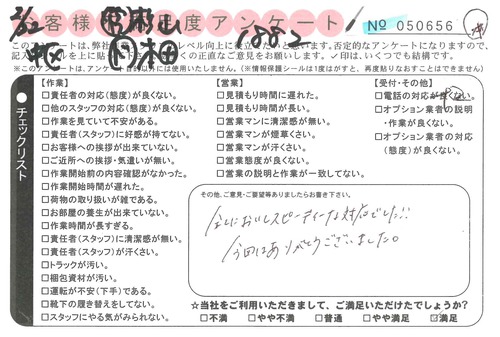 お客様満足度アンケート
№ 050656
1882
このアンケートは、弊社
レベル向上に役立
たいと思います。否定的なアンケートになりますので、
くの正直なご意見をお願いします。✓印は、いくつでも結構です。
※このアンケートは、アンケート
以外には使用いたしません。(※情報保護シールは1度はがすと、再度貼りなおすことはできません)
チェックリスト
【作業】
□責任者の対応(態度)が良くない。
□他のスタッフの対応(態度)が良くない。
□作業を見ていて不安がある。
□責任者(スタッフ)に好感が持てない。
□お客様への挨拶が出来ていない。
□ご近所への挨拶・気遣いが無い。
□作業開始前の内容確認がなかった。
□作業開始時間が遅れた。
□荷物の取り扱いが雑である。
□お部屋の養生が出来ていない。
□作業時間が長すぎる。
□責任者(スタッフ)に清潔感が無い。
□責任者(スタッフ)が汗くさい。
□トラックが汚い。
□梱包資材が汚い。
□運転が不安(下手)である。
□靴下の履き替えをしてない。
□スタッフにやる気がみられない。
【営業】
□見積もり時間に遅れた。
□見積もり時間が長い。
□営業マンに清潔感が無い。
□営業マンが煙草くさい。
□営業マンが汗くさい。
□営業態度が良くない。
□営業の説明と作業が一致してない。
【受付・その他】
□電話の対応が良くない。
□オプション業者の説明
・作業が良くない。
□オプション業者の対応
(態度)が良くない。
その他、ご意見・ご要望等ありましたらお書き下さい。
全てにおいてスピーディーな対応でした
今回はありがとうございました。
☆当社をご利用いただきまして、ご満足いただけたでしょうか?
□不満 □やや不満 □普通 □やや満足 ☑満足